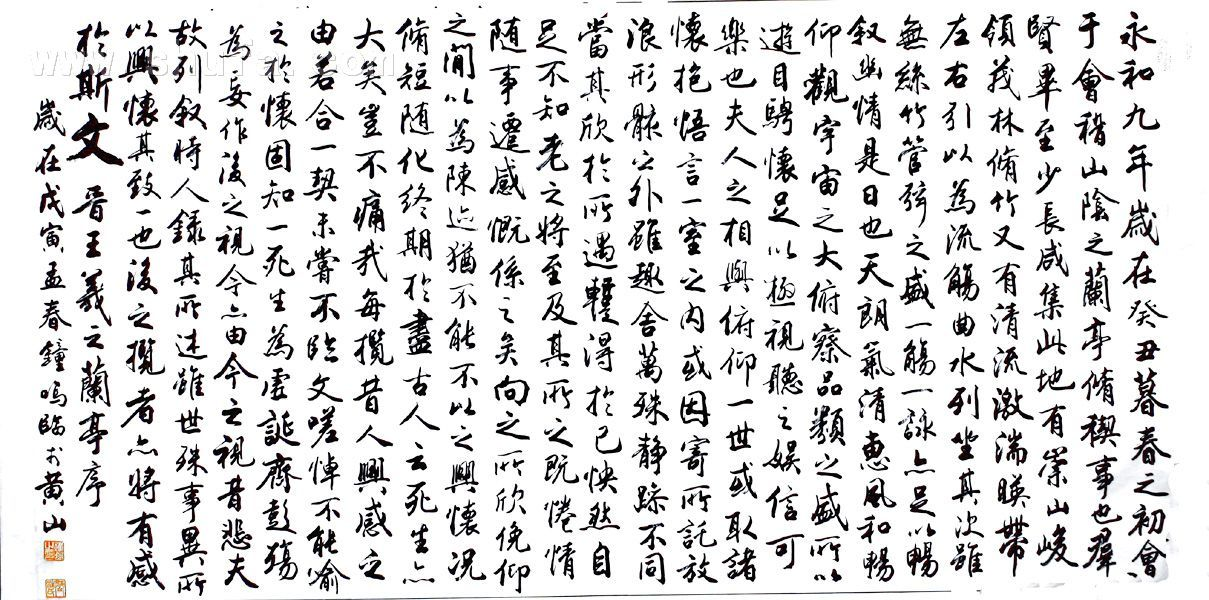 永和九年歲在癸丑暮春之初會
于會稽山陰之蘭亭脩稧事也羣
賢畢至少長咸集此地有崇山峻
領茂林脩竹又有清流激湍暎帶
左右引以為流觴曲水列坐其次雖
無絲竹管弦之盛一觴一詠亦足以暢
敘幽情是日也天朗氣清惠風和暢
仰觀宇宙之大俯察品類之盛所以
遊目騁懷足以極視聽之娛信可
樂也夫人之相與俯仰一世或取諸
懷抱悟言一室之內或因寄所託放
浪形骸之外雖趣舍萬殊静躁不同
當其欣於所遇蹔得於己怏然自
足不知老之將至及其所之既惓情
随事遷感慨係之矣向之所欣俛仰
之閒以為陳迹猶不能不以之興懷況
脩短随化終期於盡古人云死生亦
大矣豈不痛哉每攬昔人興感之
由若合一契未嘗不臨文嗟悼不能喻
之於懷固知一死生為虛誕齊彭殤
為妄作後之視今亦由今之視昔悲夫
故列敘時人錄其所述雖世殊事異所
以興懷其致一也後之攬者亦將有感
於斯文 晉王羲之蘭亭序
歲在戊寅孟春鐘鳴臨於黄山